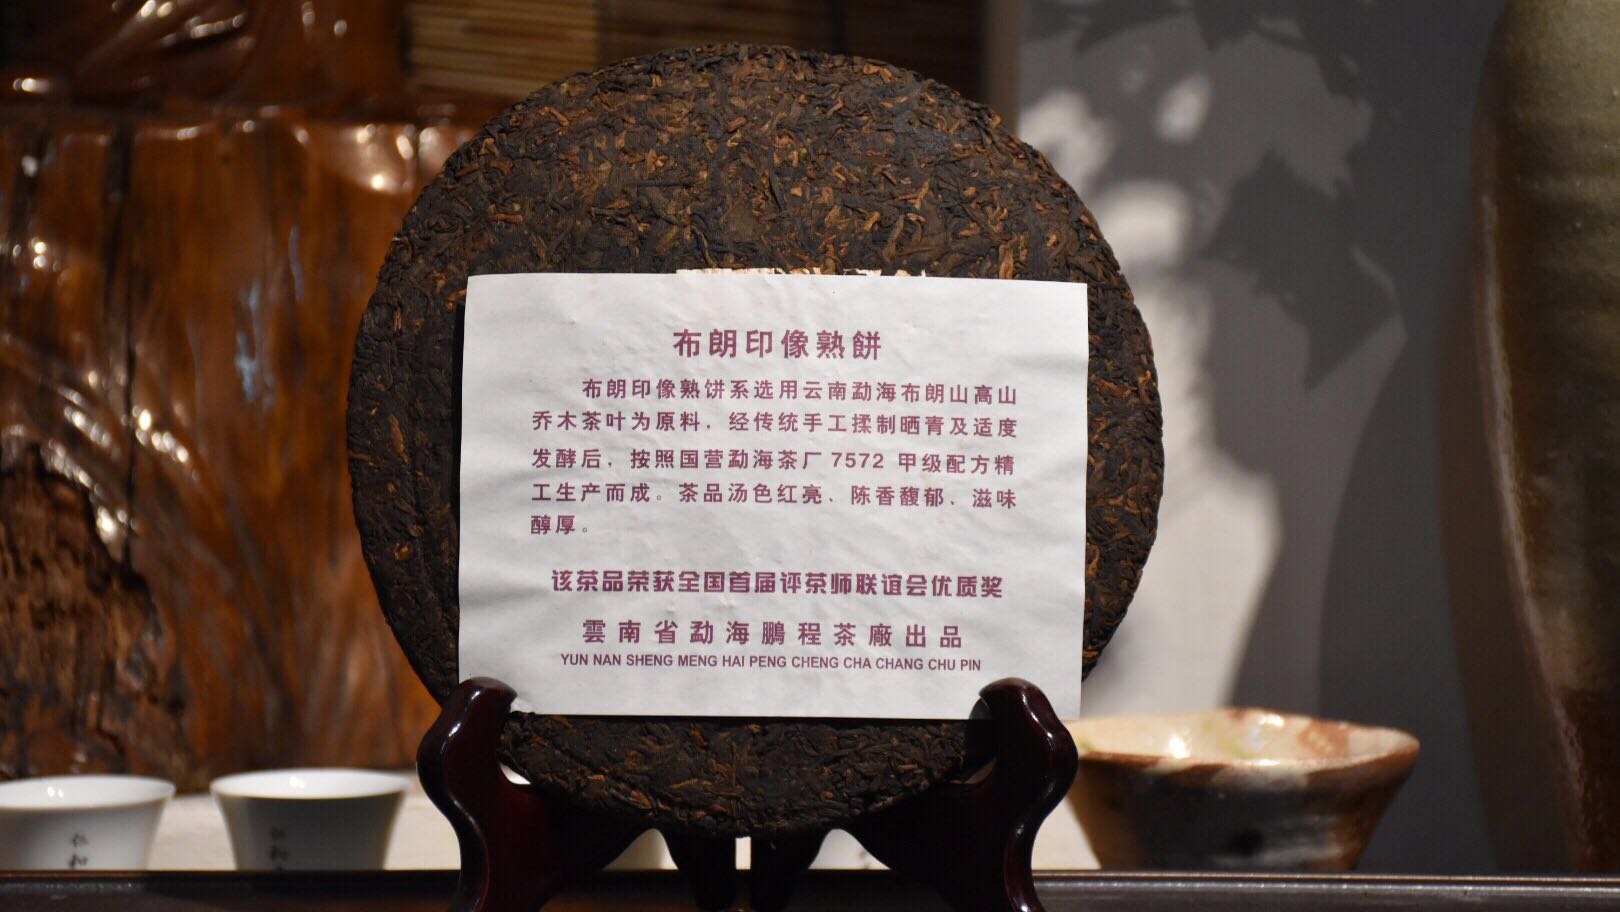 布朗印像熟餅
布朗印像熟饼系选用云南勐海布朗山高山
乔木茶叶为原料，经传统手工揉制晒青及适度
发酵后，按照国营勐海茶厂7572 甲级配方精
工生产而成。茶品汤色红亮、陈香馥郁、滋味
醇厚。
该茶品荣获全国首届评茶师联谊会优质奖
雲南省勐海鵬程茶廠出品
YUN NAN SHENG MENG HAI PENG CHENG CHA CHANG CHU PIN
仁和
仁和